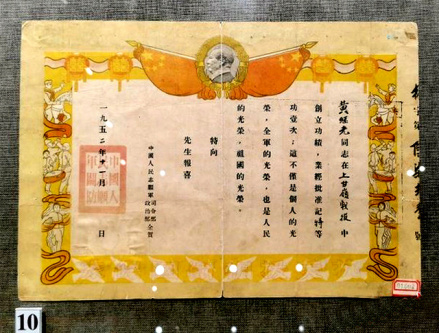 黄继光同志在上甘嶺戰役中
創立功績，業經批准記特等
功壹次；這不僅是個人的光
榮，全軍的光榮，也是人民
的光榮，祖國的光榮。
特向
先生報喜
中國人民志願軍
司令部
政治部
仝賀
一九五二年十一月 日
10